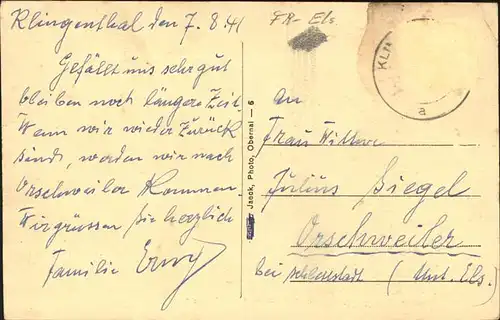 Klingenthal den 7. 8. 41
Gefällt uns sehr gut
bleiben noch längere Zeit
Wann wir wieder Zurück
sind, werden wir nach
Orschweiler Kommen.
Wir grüssen Sie herzlich
Familie
FR- Els.
KLIN
a
An
Frau Wittwe
Julius Siegel
Orschweiler
bei Schlettstadt (Unt. Els.)
Jaeck, Photo, Obernai — 6